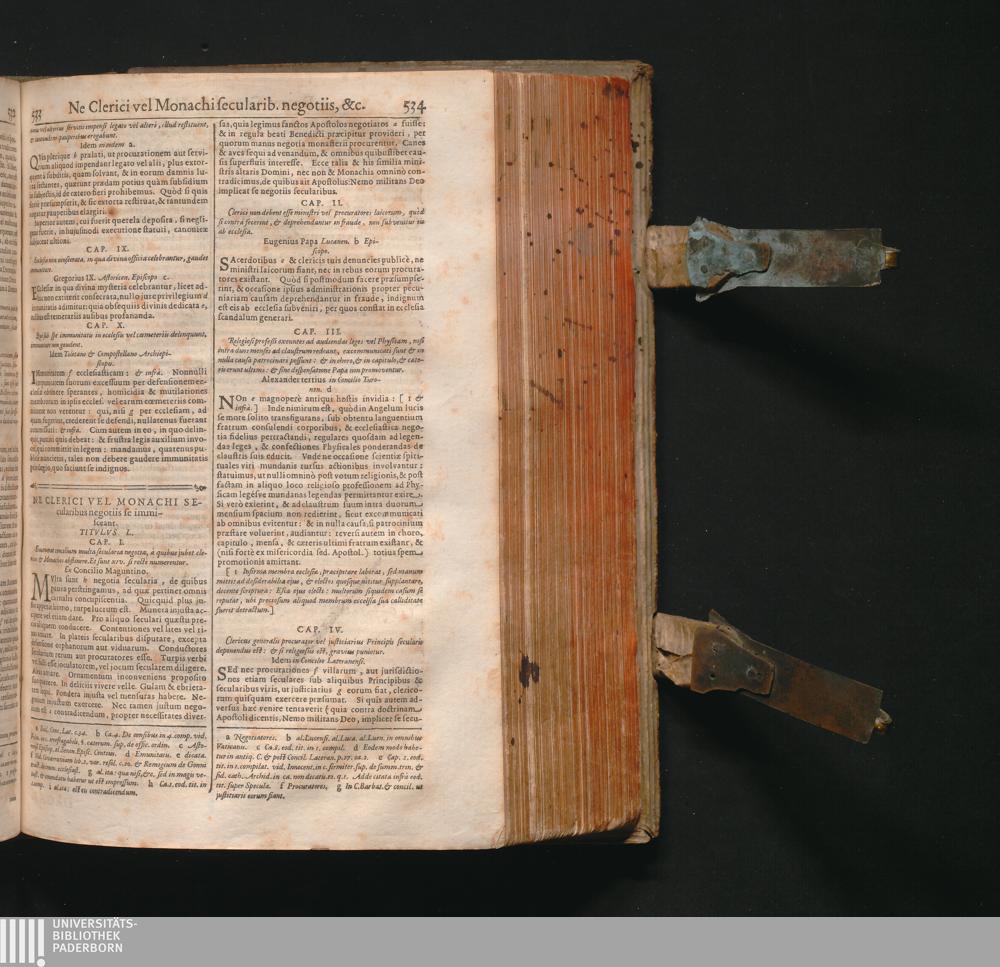 533 Ne Clerici vel Monachi secularib. negotiis, &c. 534
Idem in eodem a.
Quia plerique b prælati, ut procurationem aut servi-
tium aliquod impendant legato vel alii, plus extor-
quent à subditis, quam solvant, & in eorum damnis lu-
cra sectantes, quærunt prædam potius quàm subsidium
in subjectis, id de cætero fieri prohibemus. Quòd si quis
fortè præsumpserit, & sic extorta restituat, & tantundem
cogatur pauperibus elargiri.
CAP. IX.
Ecclesia non consecrata, in qua divina officia celebrantur, gaudet
immunitate.
Gregorius IX. Astoricen. Episcopo c.
Ecclesiæ in qua divina mysteria celebrantur, licet ad-
huc non extiterit consecrata, nullo jure privilegium d
immunitatis adimitur: quia obsequiis divinis dedicata e,
nullius est temerariis ausibus profananda.
CAP. X.
immunitate non gaudent.
Idem Toletano & Compostellano Archiepi-
scopis.
Immunitatem f ecclesiasticam: & infrà. Nonnulli
impunitatem suorum excessuum per defensionem ec-
clesiæ obtinere sperantes, homicidia & mutilationes
membrorum in ipsis eccles. vel earum cœmeteriis com-
mittere non verentur: qui, nisi g per ecclesiam, ad
quam fugiunt, crederent se defendi, nullatenus fuerant
commissuri: & infrà. Cum autem in eo, in quo delin-
quit, puniri quis debeat: & frustra legis auxilium invo-
cet, qui committit in legem: mandamus, quatenus pu-
blicè nuncietis, tales non debere gaudere immunitatis
privilegio, quo faciunt se indignos.
NE CLERICI VEL MONACHI SE-
cularibus negotiis se immi-
sceant.
TITVLVS L.
CAP. I.
Enumerat concilium multa secularia negotia, à quibus jubet cle-
ricos & Monachos abstinere. Et sunt xrv. si rectè numerentur.
Ex Concilio Maguntino.
Multa sunt h negotia secularia, de quibus
pauca perstringamus, ad quæ pertinet omnis
carnalis concupiscentia. Quicquid plus ju-
sto appetit homo, turpe lucrum est. Munera injusta ac-
cipere vel etiam dare. Pro aliquo seculari quæstu pre-
cio aliquem conducere. Contentiones vel lites vel ri-
xas amare. In plateis secularibus disputare, excepta
defensione orphanorum aut viduarum. Conductores
secularium rerum aut procuratores esse. Turpis verbi
vel facti esse joculatorem, vel jocum secularem diligere.
Aleas amare. Ornamentum inconveniens proposito
suo quærere. In deliciis vivere velle. Gulam & ebrieta-
tem sequi. Pondera injusta vel mensuras habere. Ne-
gotium injustum exercere. Nec tamen justum nego-
tium est i contradicendum, propter necessitates diver-
sas, quia legimus sanctos Apostolos negotiatos a fuisse:
& in regula beati Benedicti præcipitur provideri, per
quorum manus negotia monasterii procurentur. Canes
& aves sequi ad venandum, & omnibus quibuslibet cau-
sis superfluis interesse. Ecce talia & his similia mini-
stris altaris Domini, nec non & Monachis omninò con-
tradicimus, de quibus ait Apostolus: Nemo militans Deo
implicat se negotiis secularibus.
CAP. II.
Clerici non debent esse ministri vel procuratores laicorum, quòd
si contrà fecerint, & deprehendantur in fraude, non subvenitur iis
ab ecclesia.
Eugenius Papa Lucanen. b Epi-
scopo.
Sacerdotibus c & clericis tuis denuncies publicè, ne
ministri laicorum fiant, nec in rebus eorum procura-
tores existant. Quòd si postmodum facere præsumpse-
rint, & occasione ipsius administrationis propter pecu-
niariam causam deprehendantur in fraude, indignum
est eis ab ecclesia subveniri, per quos constat in ecclesia
scandalum generari.
CAP. III.
Religiosi professi exeuntes ad audiendas leges vel Physicam, nisi
intra duos menses ad claustrum redeant, excommunicati sunt & in
nulla causa patrocinari possunt: & in choro, & in capitulo, & cæte-
ris erunt ultimi: & sine dispensatione Papæ non promoventur.
Alexander tertius in Concilio Turo-
nen. d
Non e magnoperè antiqui hostis invidia: [ 1 &
infrà.] Inde nimirum est, quòd in Angelum lucis
se more solito transfigurans, sub obtentu languentium
fratrum consulendi corporibus, & ecclesiastica nego-
tia fidelius pertractandi, regulares quosdam ad legen-
das leges, & confectiones Physicales ponderandas de
claustris suis educit. Vnde ne occasione scientiæ spiri-
tuales viri mundanis rursus actionibus involvantur:
statuimus, ut nulli omninò post votum religionis, & post
factam in aliquo loco religioso professionem ad Phy-
sicam legésve mundanas legendas permittantur exire.
Si verò exierint, & ad claustrum suum intra duorum
mensium spacium non redierint, sicut excommunicati
ab omnibus evitentur: & in nulla causa, si patrocinium
præstare voluerint, audiantur: reversi autem in choro,
capitulo, mensa, & cæteris ultimi fratrum existant, &
(nisi fortè ex misericordia sed. Apostol.) totius spem
promotionis amittant.
[ 1 Infirma membra ecclesiæ, præcipitare laborat, sed manum
mittit ad desiderabilia ejus, & electos quosque nititur supplantare,
dicente scriptura: Esca ejus electi: multorum siquidem casum se
reputat, ubi preciosum aliquod membrum ecclesiæ sua calliditate
fuerit detractum.]
CAP. IV.
Clericus generalis procurator vel justiciarius Principis secularis
deponendus est: & si religiosus est, gravius punietur.
Idem in Concilio Lateranensi.
Sed nec procurationes f villarum, aut jurisdictio-
nes etiam seculares sub aliquibus Principibus &
secularibus viris, ut justiciarius g eorum fiat, clerico-
rum quisquam exercere præsumat. Si quis autem ad-
versus hæc venire tentaverit (quia contra doctrinam
Apostoli dicentis, Nemo militans Deo, implicet se secu-
a Negotiatores. b al. Lucensi. al. Luca. al. Lucn. in omnibus
Vaticanis. c Ca. 8. eod. tit. in 1. compil. d Eodem modo habe-
tur in antiq. C. & post Concil. Lateran. p. 27. ca. 2. e Cap. 2. eod.
tit. in 1. compilat. vid. Innocent. in c. firmiter. sup. de summ. trin. &
fid. cath. Archid. in ca. non dicatis. 12. q. 1. Adde citata infrà eod.
tit. super Specula. f Procuratores, g In C. Barbat. & concil. ut
justitiarii eorum fiant.
UNIVERSITÄTS-
BIBLIOTHEK
PADERBORN